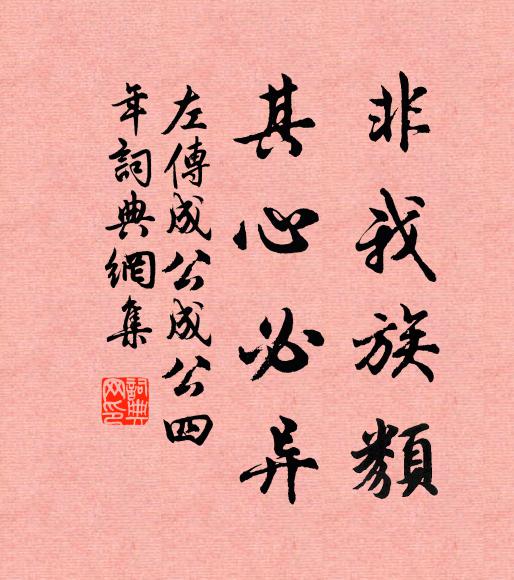 非我族類
其心必异
左傳成公成公四
年詞典網集
詞典
网印